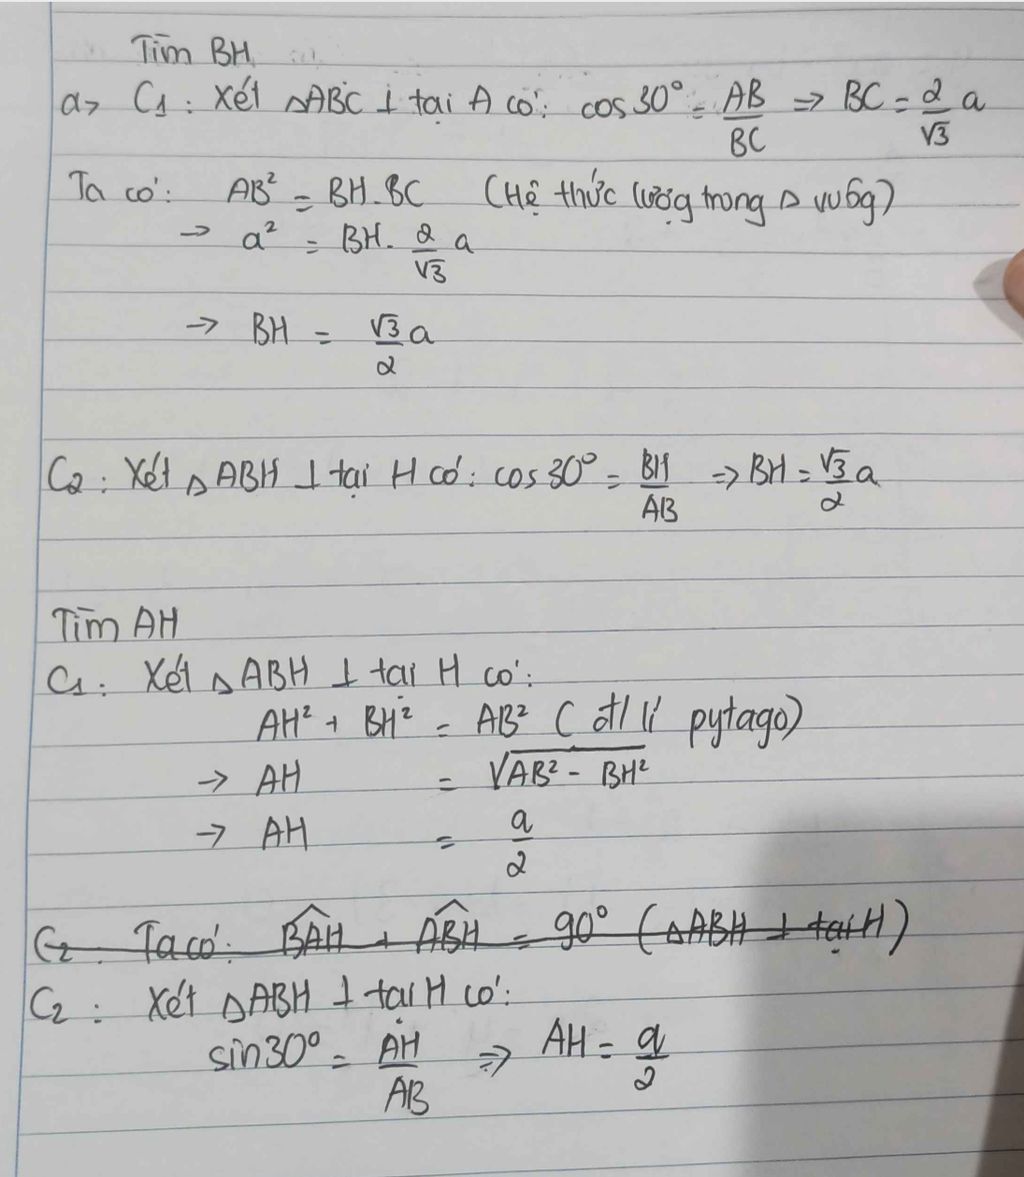 Tìm BH
a, C₁: Xét △ABC ⊥ tại A có: cos 30° = AB/BC ⇒ BC = 2/√3 a
Ta có: AB² = BH.BC (Hệ thức lượng trong △ vuôg)
→ a² = BH. 2/√3 a
→ BH = √3/2 a
C₂: Xét △ABH ⊥ tại H có: cos 30° = BH/AB ⇒ BH = √3/2 a
Tìm AH
C₁: Xét △ABH ⊥ tại H có:
AH² + BH² = AB² (đl lí pytago)
→ AH = √(AB² - BH²)
→ AH = a/2
C₂: Ta có: BAH + ABH = 90° (△ABH ⊥ tại H)
C₂: Xét △ABH ⊥ tại H có:
sin 30° = AH/AB ⇒ AH = a/2